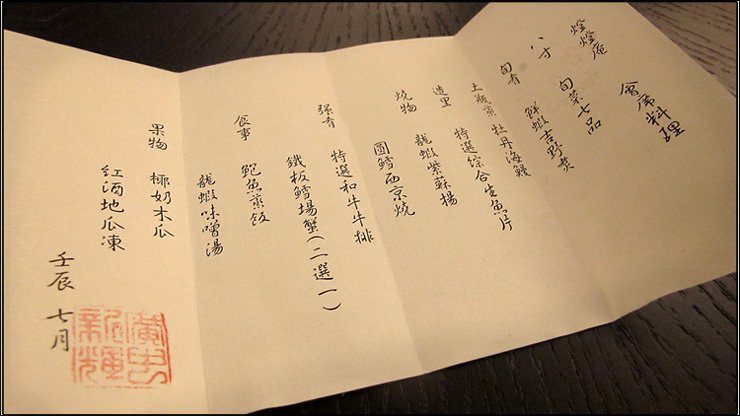 燈燈庵 會席料理
八寸 旬菜七品
旬肴 鮮蝦吉野煮
土瓶蒸 牡丹海鰻
造里 特選綜合生魚片
龍蝦紫蘇揚
燒物 圓鱈西京燒
強肴 特選和牛牛排
鐵板鱈場蟹(二選一)
食事 鮑魚蒸飯
龍蝦味噌湯
果物 椰奶木瓜
紅酒地瓜凍
壬辰 七月